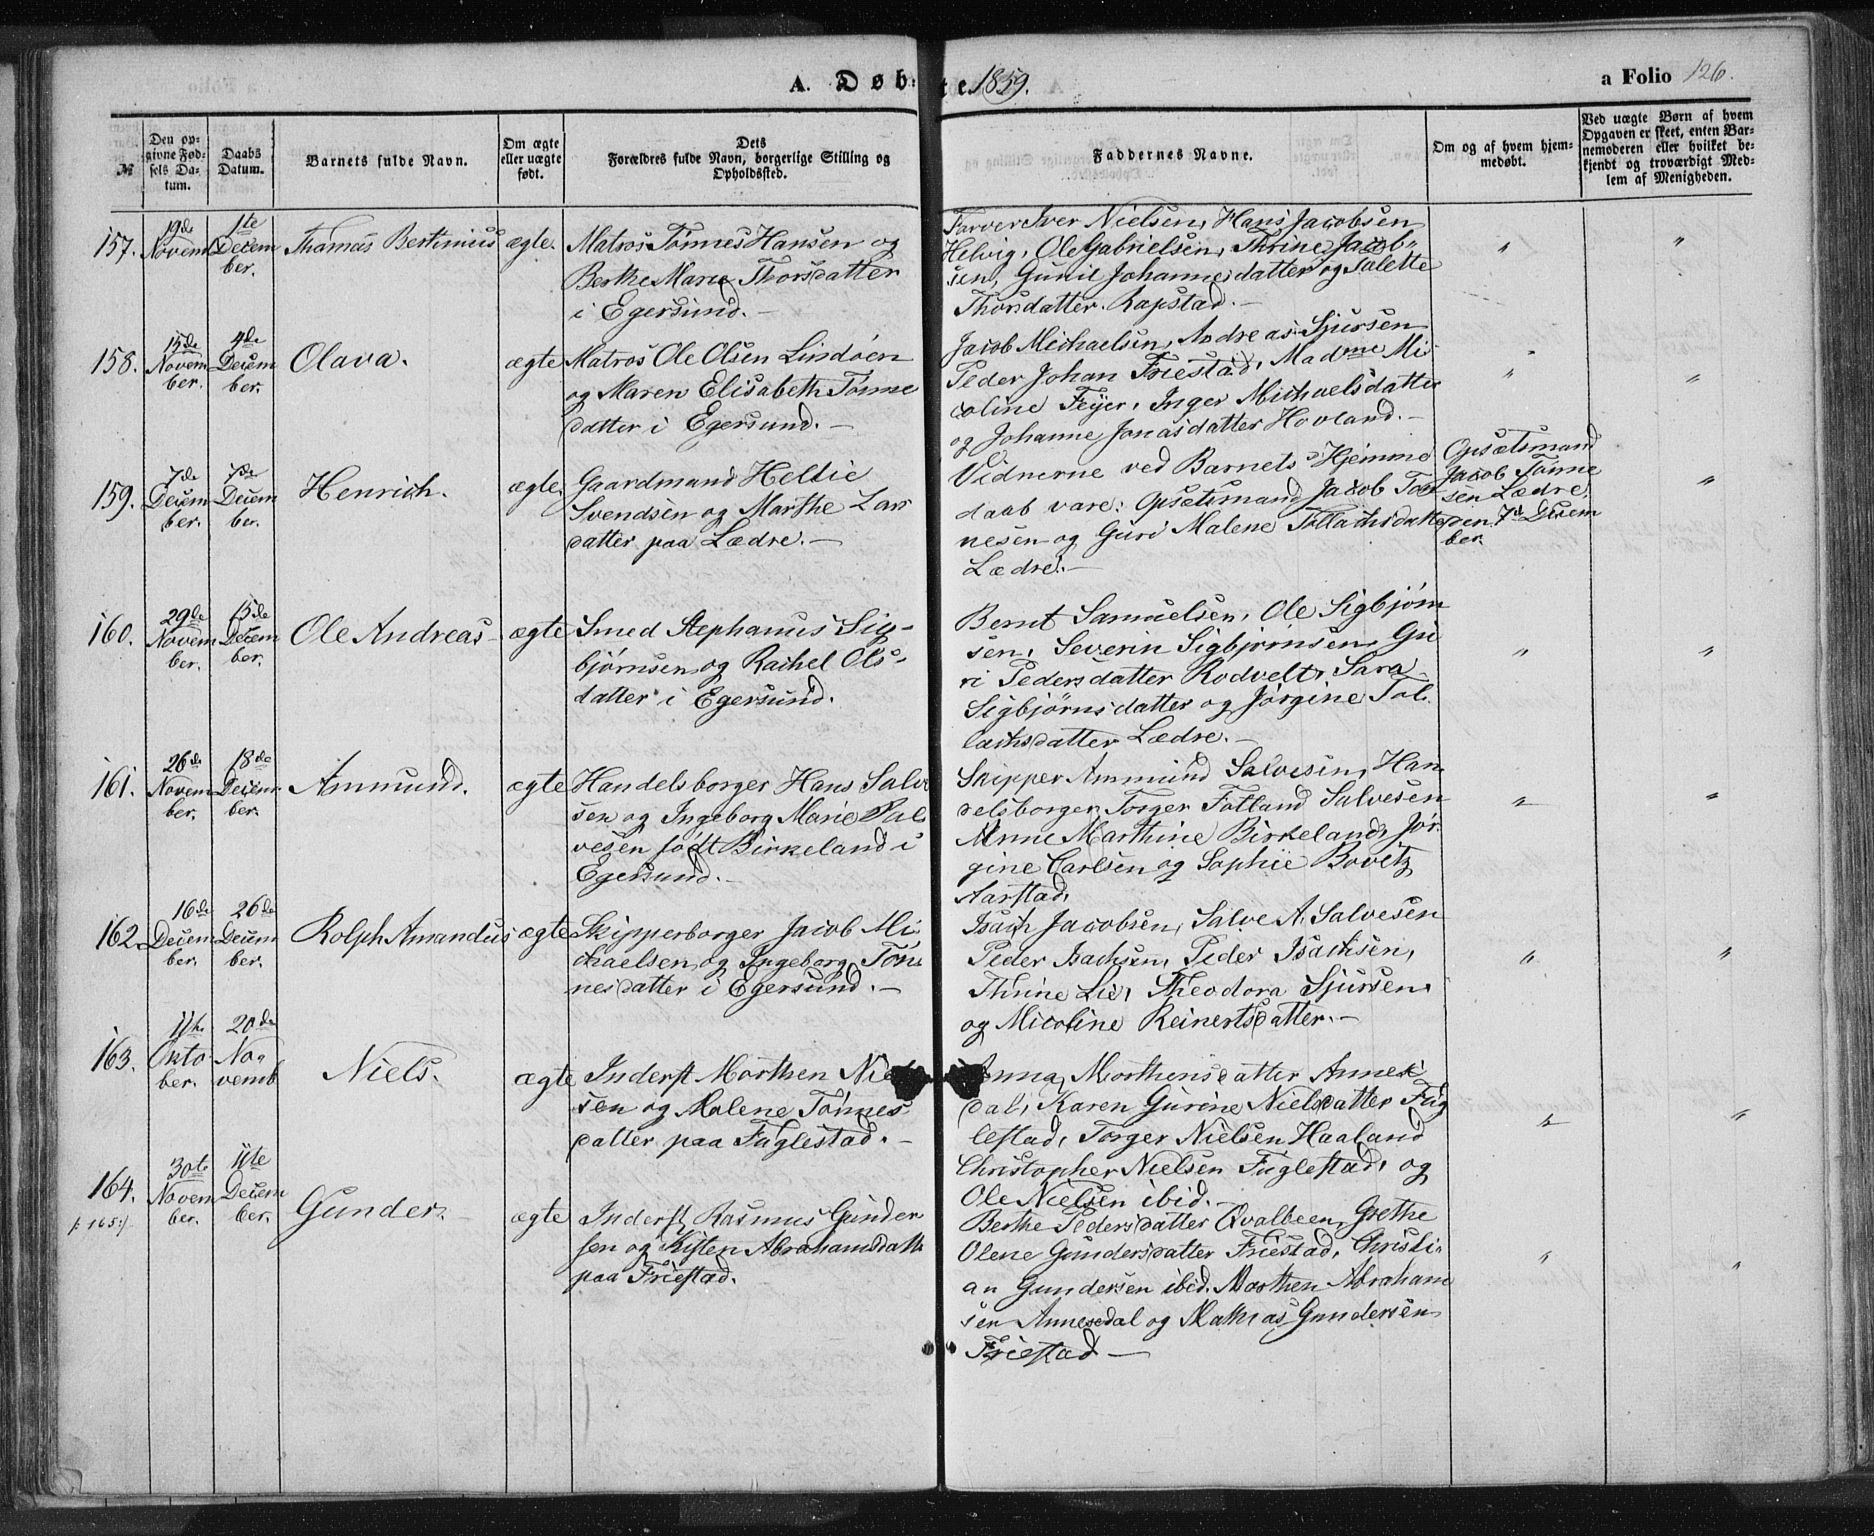 A. Døbte 1859.
a Folio 126.
№
Den op-
givne Fød-
sels Da-
tum.
Daabs
Datum.
Barnets fulde Navn.
Om ægte
eller uægte
født.
Dets
Forældres fulde Navn, borgerlige Stilling og
Opholdssted.
Faddernes Navne.
Om og af hvem hjem-
medøbt.
Ved uægte Børn af hvem
Opgaven er skeet, enten Bar-
nemoderen eller hvilket be-
kjendt og troværdigt Med-
lem af Menigheden.
157.
19de
Novem
1te
Decem
ber.
Thomas Bertinius
ægte.
Matros Tönnes Hansen og
Berthe Marie Thorsdatter
i Egersund.
Farver Iver Nielsen, Hans Jacobsen
Helvig, Ole Gabrielsen, Thrine Jacob-
sen, Gunil Johannesdatter og Salette
Thorsdatter Rapstad.
"
"
158.
15de
Novem
ber.
4de
Decem
ber.
Olava.
ægte
Matros Ole Olsen Lindöen
og Maren Elisabeth Tönne
datter i Egersund.
Jacob Michaelsen, Andreas Sjursen
Peder Johan Friestad, Madme Mi
coline Feyer, Inger Michaelsdatter
og Johanne Jonasdatter Hovland.
"
"
159.
7de
Decem
ber.
7de
Decem
ber.
Henrich.
ægte.
Gaardmand Heltie
Svendsen og Marthe Lars
datter paa Lædre.
Vidnerne ved Barnets Hjemme
daab vare: Opsetsmand Jacob Tön
nesen og Guri Malene Tollachsdatter
Lædre.
Opsætsmand
Jacob Tönne
sen Lædre,
den 7d Decem
ber.
"
160.
29de
Novem
ber.
15de
Decem
ber.
Ole Andreas
ægte
Smed Stephanus Sig-
björnsen og Rachel Ols-
datter i Egersund.
Bernt Samuelsen, Ole Sigbjörn
sen, Severin Sigbjörnsen, Gu
ri Pedersdatter Rodvelt, Sara
Sigbjörnsdatter og Jörgine Tol
lachsdatter Lædre.
"
"
161.
26de
Novem
ber.
18de
Decem
ber.
Ammund.
ægte
Handelsborger Hans Salve
sen og Ingeborg Marie Sal
vesen født Birkeland i
Egersund.
Skipper Ammund Salvesen, Han
delsborger Torger Fotland Salvesen
Anne Marthine Birkeland, Jör
gine Carlsen og Sophie Bovitz
Aarstad.
"
"
162.
16de
Decem
ber.
26de
Decem
ber.
Rolph Amandus
ægte
Skipperborger Jacob Mi
chaelsen og Ingeborg Tön
nesdatter i Egersund.
Isach Jacobsen, Salve A. Salvesen
Peder Isachsen,
Thrine Lie, Theodora Sjursen
og Micoline Reinertsdatter.
"
"
163.
11te
Okto
ber.
20de
No-
vemb
Niels.
ægte
Inderst Morthen Niel
sen og Malene Tönnes
datter paa Fuglestad.
Anna Morthensdatter Annes
dal, Karen Gurine Nielsdatter Fug
lestad, Torger Nielsen Haaland
Christopher Nielsen Fuglestad, og
Ole Nielsen ibid.
"
"
164.
/: 165:/.
30te
Novem
ber.
11te
Decem
ber.
Gunder.
ægte
Inderst Rasmus Gunder
sen og Kisten Abrahamsdatt
paa Friestad.
Berthe Pedersdatter Qvalbeen, Grethe
Olene Gundersdatter Friestad, Christi-
an Gundersen ibid. Morthen Abraham
sen Annesdal og Mathias Gundersen
Friestad
"
"